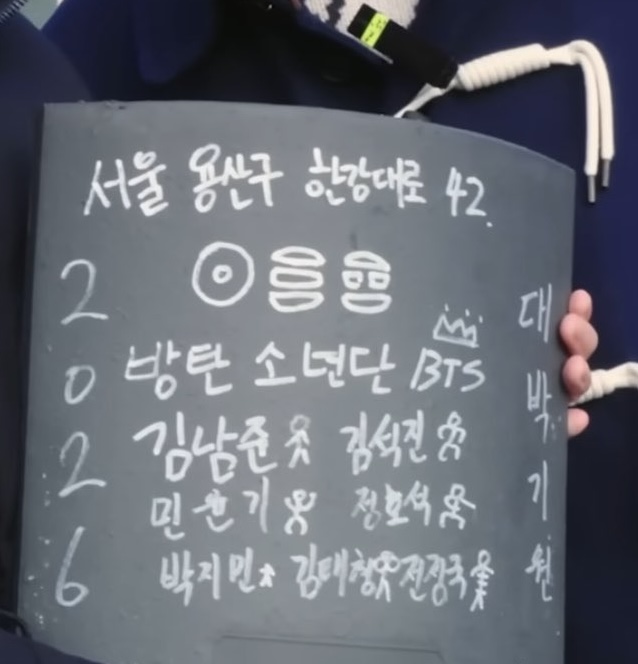 서울 용산구 한강대로 42.
방탄소년단 BTS
김남준 김석진
민윤기 정호석
박지민 김태형 전정국
2026
대박기원